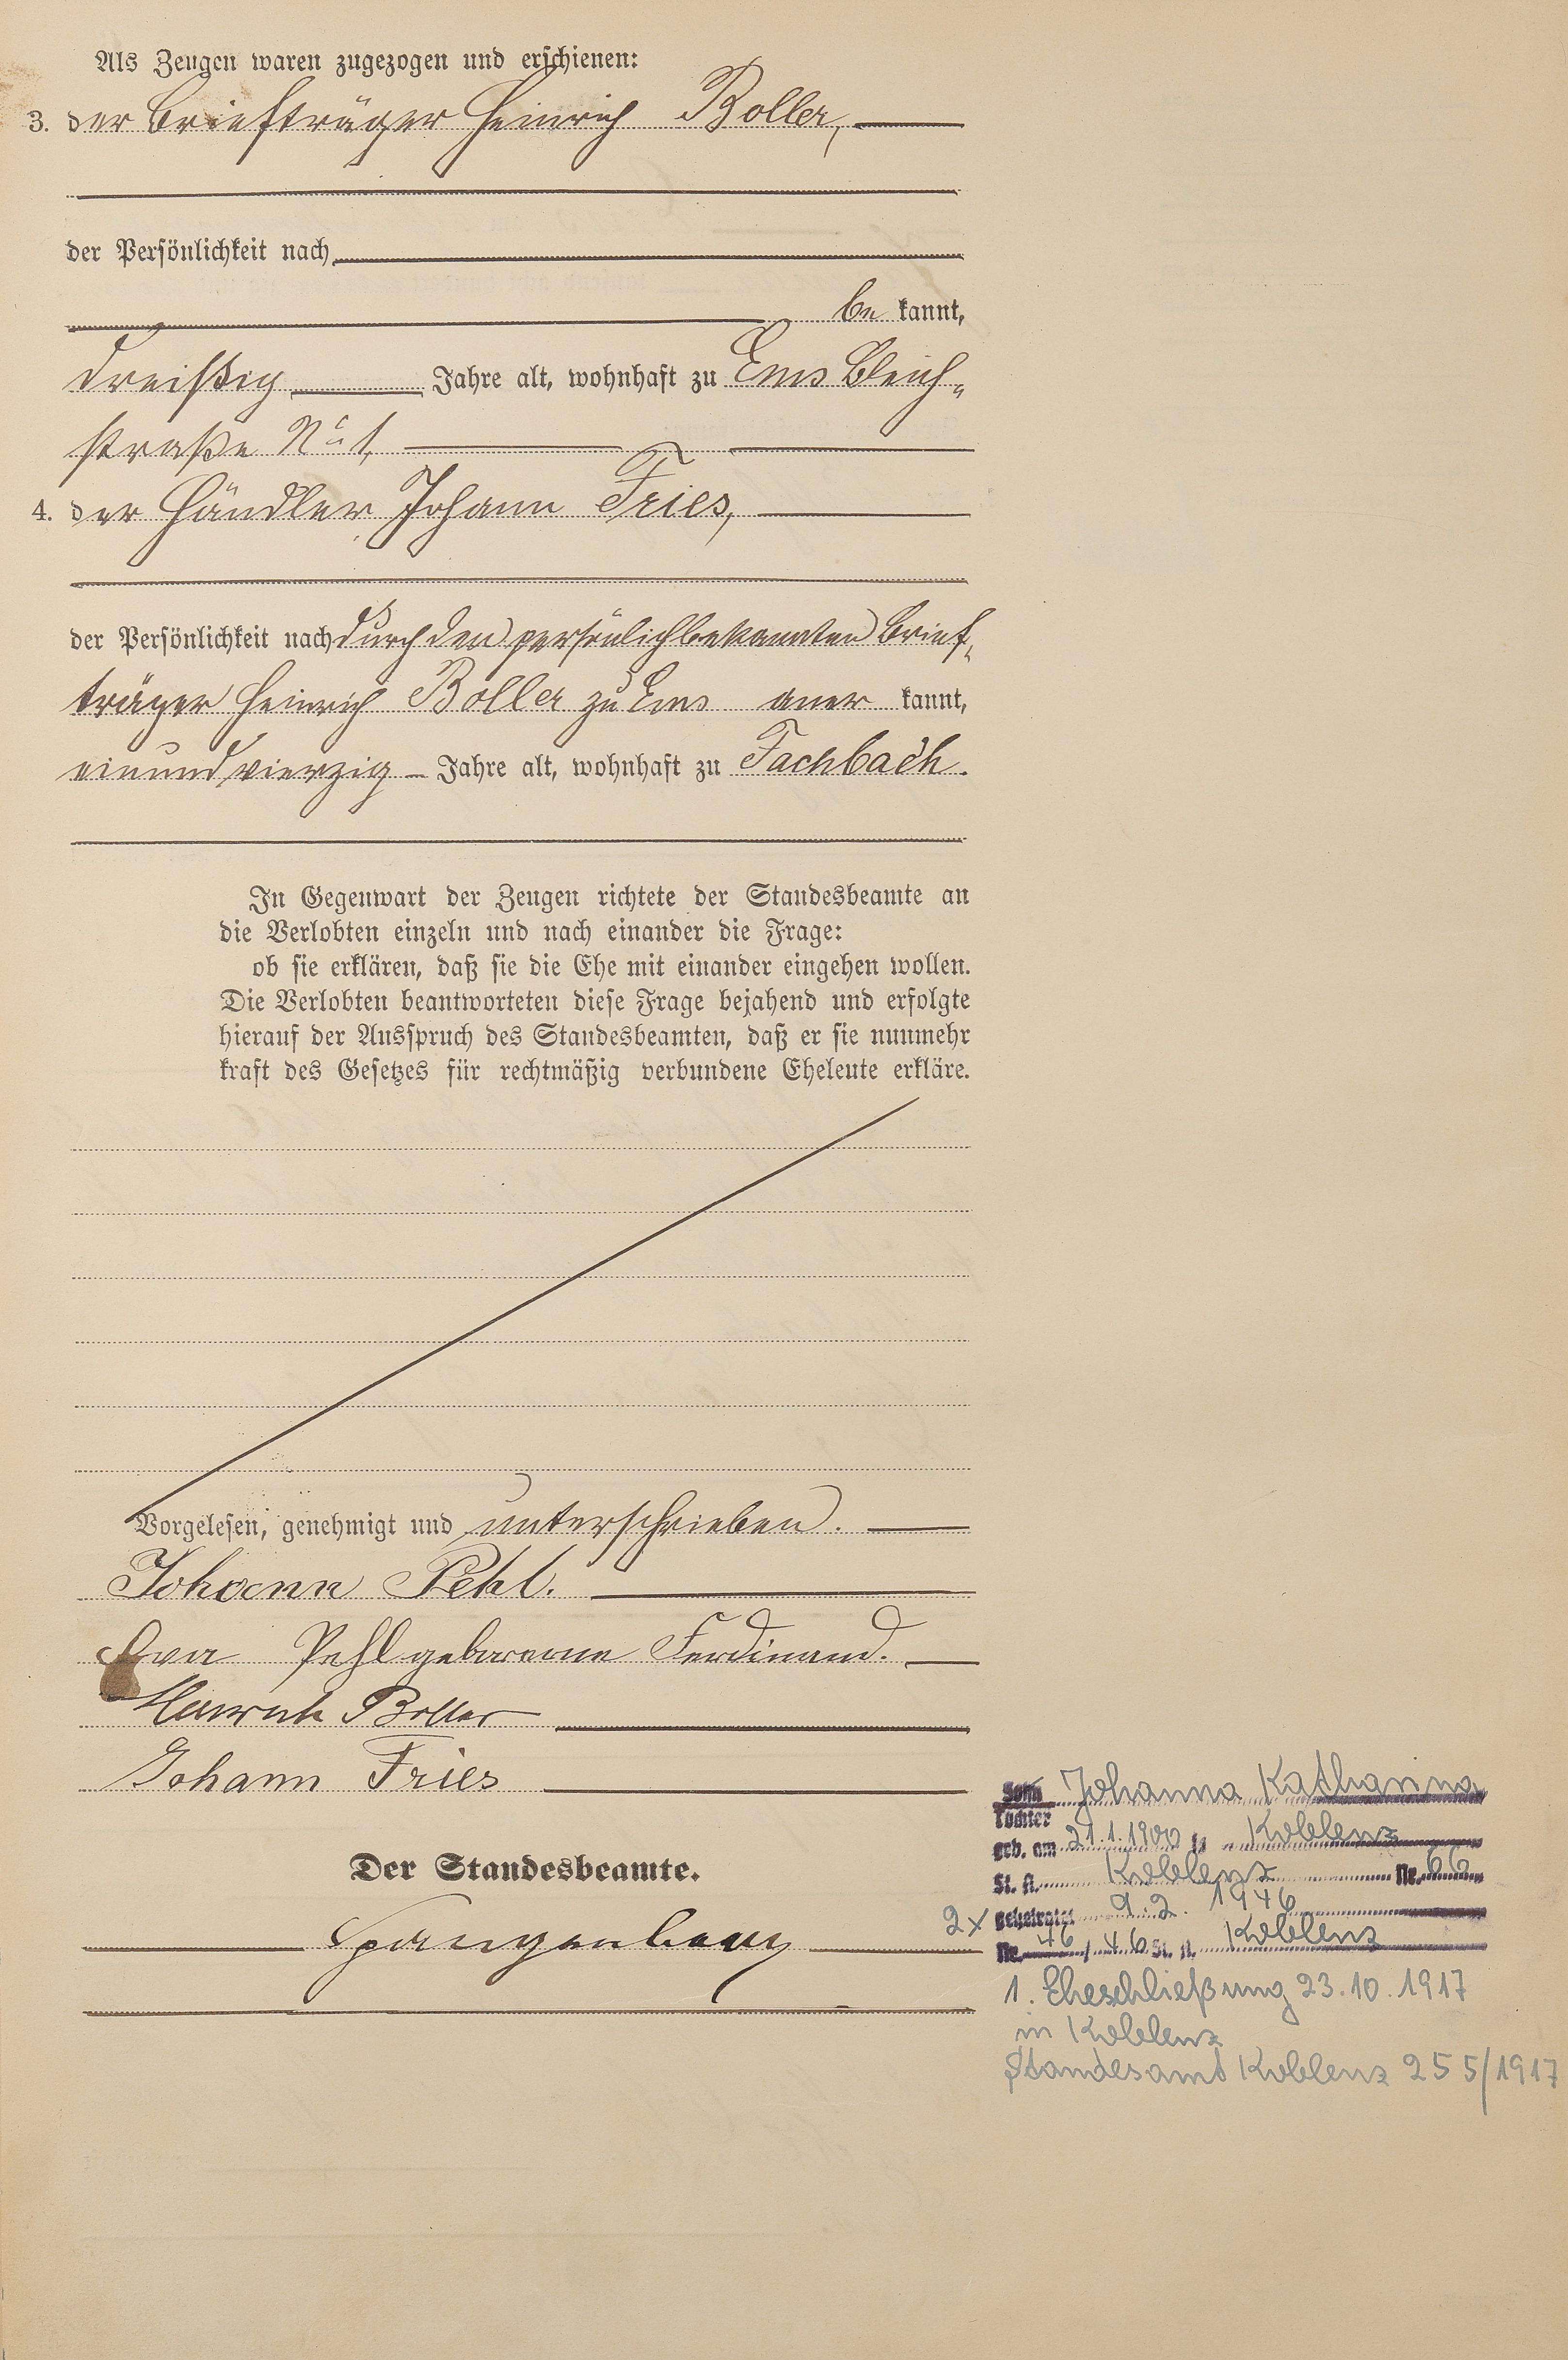 Als Zeugen waren zugezogen und erschienen:
3. der Briefträger Heinrich Boller,
der Persönlichkeit nach
be kannt,
dreißig Jahre alt, wohnhaft zu Ems Bleich-
straße No 1,
4. der Händler Johann Fries,
der Persönlichkeit nach durch den persönlich bekannten Brief-
träger Heinrich Boller zu Ems aner kannt,
einundvierzig Jahre alt, wohnhaft zu Fachbach.
In Gegenwart der Zeugen richtete der Standesbeamte an
die Verlobten einzeln und nach einander die Frage:
ob sie erklären, daß sie die Ehe mit einander eingehen wollen.
Die Verlobten beantworteten diese Frage bejahend und erfolgte
hierauf der Ausspruch des Standesbeamten, daß er sie nunmehr
kraft des Gesetzes für rechtmäßig verbundene Eheleute erkläre.
Vorgelesen, genehmigt und unterschrieben.
Johann Pehl.
Eva Pehl geborene Ferdinand.
Heinrich Boller
Johann Fries
Der Standesbeamte.
Spangenberg
Sohn Johanna Katharina
Tochter
geb. am 21.1.1900 in Koblenz
St. A. Koblenz Nr. 66
2x geheiratet 9.2.1946
Nr. 46 / 46 St. A. Koblenz
1. Eheschließung 23.10.1917
in Koblenz
Standesamt Koblenz 255/1917